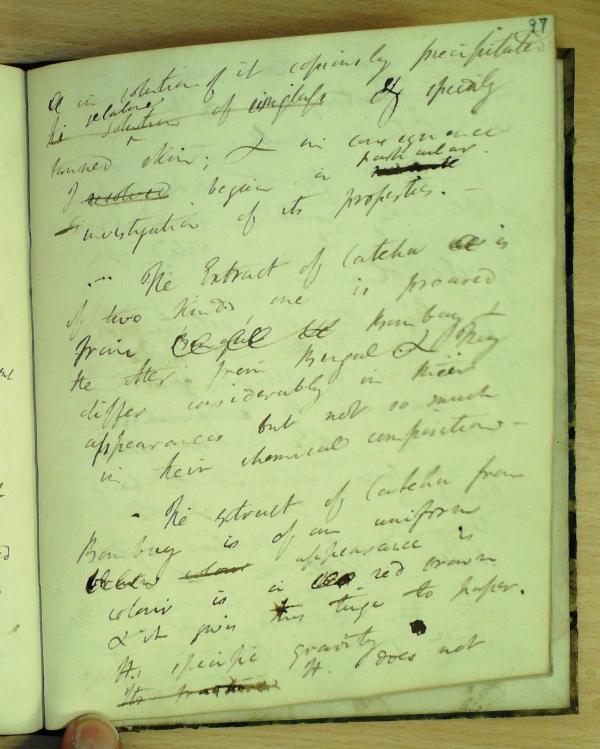 97
& in solution of it copiously precipitated
the gelatine
solution of isinglass & speedily
tanned skin; & in consequence
I resolved began a particular
investigation of its properties. —
The Extract of Catchu is
of two kinds one is procured
from Bombay &
the other from Bengal & they
differ considerably in their
appearances but not so much
in their chemical composition —
The extract of Catchu from
Bombay is of an uniform
colour appearance is
colour is a red brown
& it gives this tinge to paper.
Its specific gravity
It does not